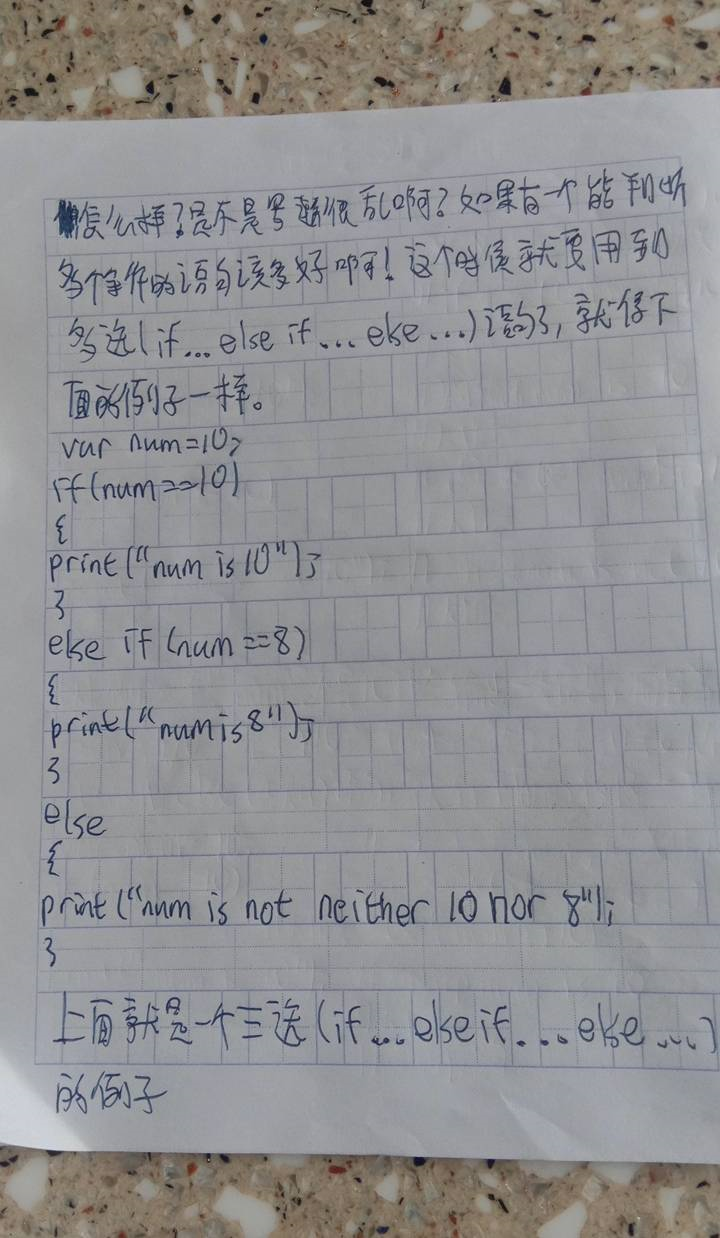 怎么样？是不是号翻很乱啊？如果有一个能判断
多个条件的语句该多好啊！这个时候就要用到
多选(if...else if...else...)语句了，就像下
面的例子一样。
var num=10;
if(num==10)
{
print("num is 10");
}
else if (num==8)
{
print("num is 8");
}
else
{
print("num is not neither 10 nor 8");
}
上面就是一个三选(if...else if...else...)
的例子